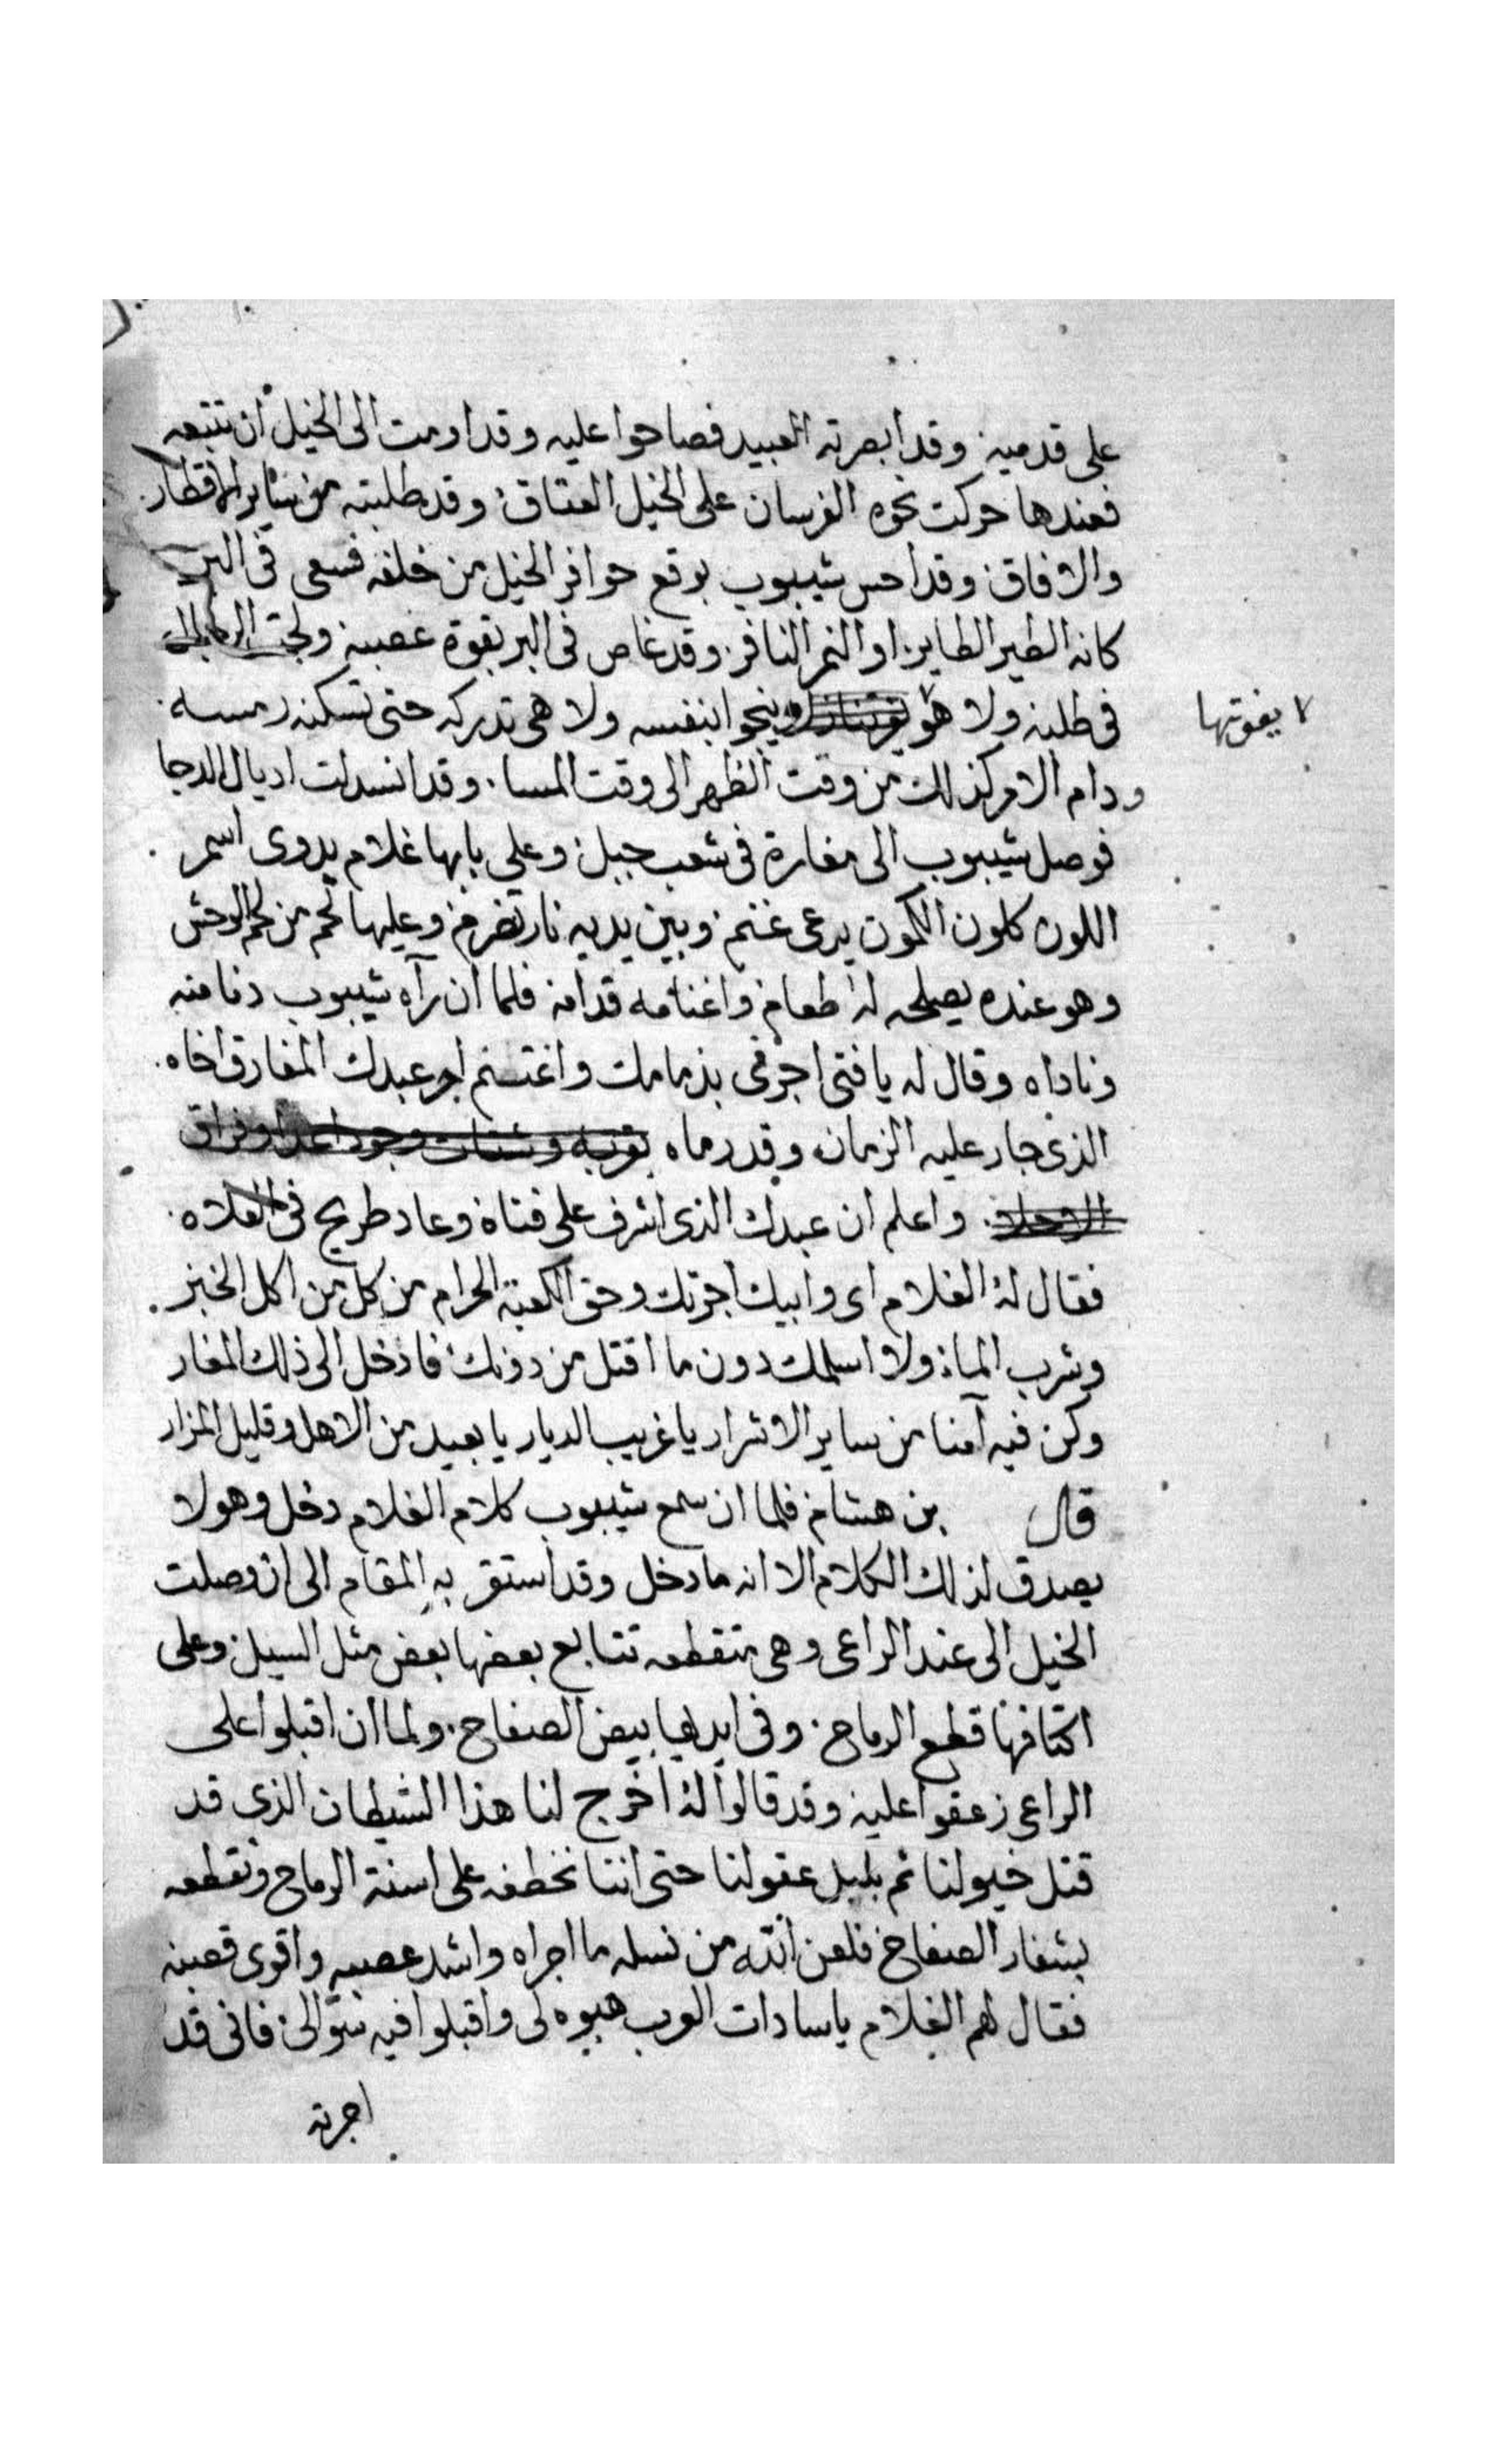 على قدميه وقد ابصرته العبيد فصاحوا عليه وقد اومت الى الخيل ان تتبعه
فعندها حركت نحوه الفرسان على الخيل العتاق وقد طلبته من ساير الاقطار
والافاق وقد احس شيبوب بوقع حوافر الخيل من خلفه فسعى فى البر
كانه الطير الطاير او النمر النافر وقد غاص فى البر بقوة عصبيه ولجت
فى طلبه ولا هو وينجوا بنفسه ولا هى تدركه حتى تسكنه رمسه
يفوتها
ودام الامر كذلك من وقت الظهر الى وقت المسا وقد انسدلت اديال الدجا
فوصل شيبوب الى مغارة فى شعب جبل وعلى بابها غلام بدوى اسمر
اللون كلون الكمون يرعى غنم وبين يديه نار تضرم وعليها لحم من لحم الوحش
وهو عنده يصلحه له طعام واغنامه قدامه فلما ان رآه شيبوب دنا منه
وناداه وقال له يا فتى اجرنى بذمامك واغتنم اجر عبدك المفارق اخاه
الذى جار عليه الزمان وقد رماه بغربه وشتات وفراق
واعلم ان عبدك الذى اشرف على فناة وعاد طريح فى الفلاه
فقال له الغلام اى وابيك اجرتك وحق الكعبة الحرام من كل من اكل الخبز
وشرب الماء ولا اسلمك دون ما اقتل من دونك فادخل الى ذلك المغار
وكن فيه آمنا من ساير الاشرار يا غريب الديار يا بعيد من الاهل وقليل المزار
قال بن هشام فلما ان سمع شيبوب كلام الغلام دخل وهو لا
يصدق لذلك الكلام الا انه ما دخل وقد استقر به المقام الى ان وصلت
الخيل الى عند الراعى وهى متقطعه تتابع بعضها بعض مثل السيل وعلى
اكتافها قطع الرماح وفى ايديها بيض الصفاح ولما ان اقبلوا على
الراعى زعقوا عليه وقد قالوا له اخرج لنا هذا الشيطان الذى قد
قتل خيولنا ثم بلبل عقولنا حتى اننا نخطفه على اسنة الرماح ونقطعه
بشفار الصفاح فلعن الله من نسله ما اجراه واشد عصبه واقوى قصبه
فقال لهم الغلام يا سادات العرب هبوه لى واقبلوا فيه سوالى فانى قد
اجرته